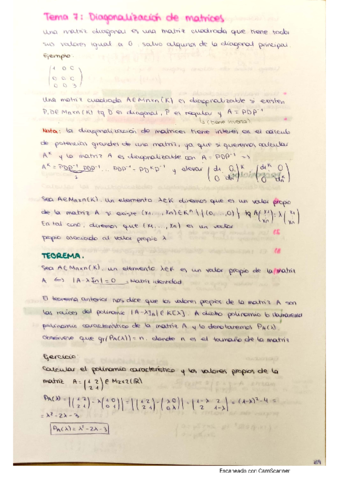 Tema 7: Diagonalización de matrices
Una matriz diagonal es una matriz cuadrada que tiene todos
sus valores igual a 0 salvo alguno de la diagonal principal
Ejemplo:
Una matriz cuadrada A∈Mnxn(K) es diagonalizable si existen
P,D∈Mnxn(K) tq D es diagonal, P es regular y A = PDP⁻¹
Nota: la diagonalización de matrices tiene interés en el cálculo
de potencias grandes de una matriz, ya que si queremos calcular
A^n y la matriz A es diagonalizable con A = PDP⁻¹ =>
Sea A∈Mnxn(K), un elemento λ∈K diremos que es un valor propio
de la matriz A si existe (x₁, ..., xn)∈K^n \ {(0, ..., 0)} tq
En tal caso, diremos que (x₁, ..., xn) es un
propio asociado al valor propio λ
TEOREMA.
Sea A∈Mnxn(K), un elemento λ∈K es un valor propio de la matriz
A |A-λIn| = 0
El teorema anterior nos dice que los valores propios de la matriz A son
las raíces del polinomio |A-λIn|∈K[λ]. A dicho polinomio lo
polinomio característico de la matriz A y lo denotaremos PA(λ)
Observese que gr(PA(λ)) = n donde n es el tamaño de la matriz
Ejercicio
Calcular el polinomio característico y los valores propios de la
matriz A = (1 2 / 2 1) ∈ M2x2(R)
= λ² - 2λ - 3
PA(λ) = λ² - 2λ - 3
Escaneado con CamScanner